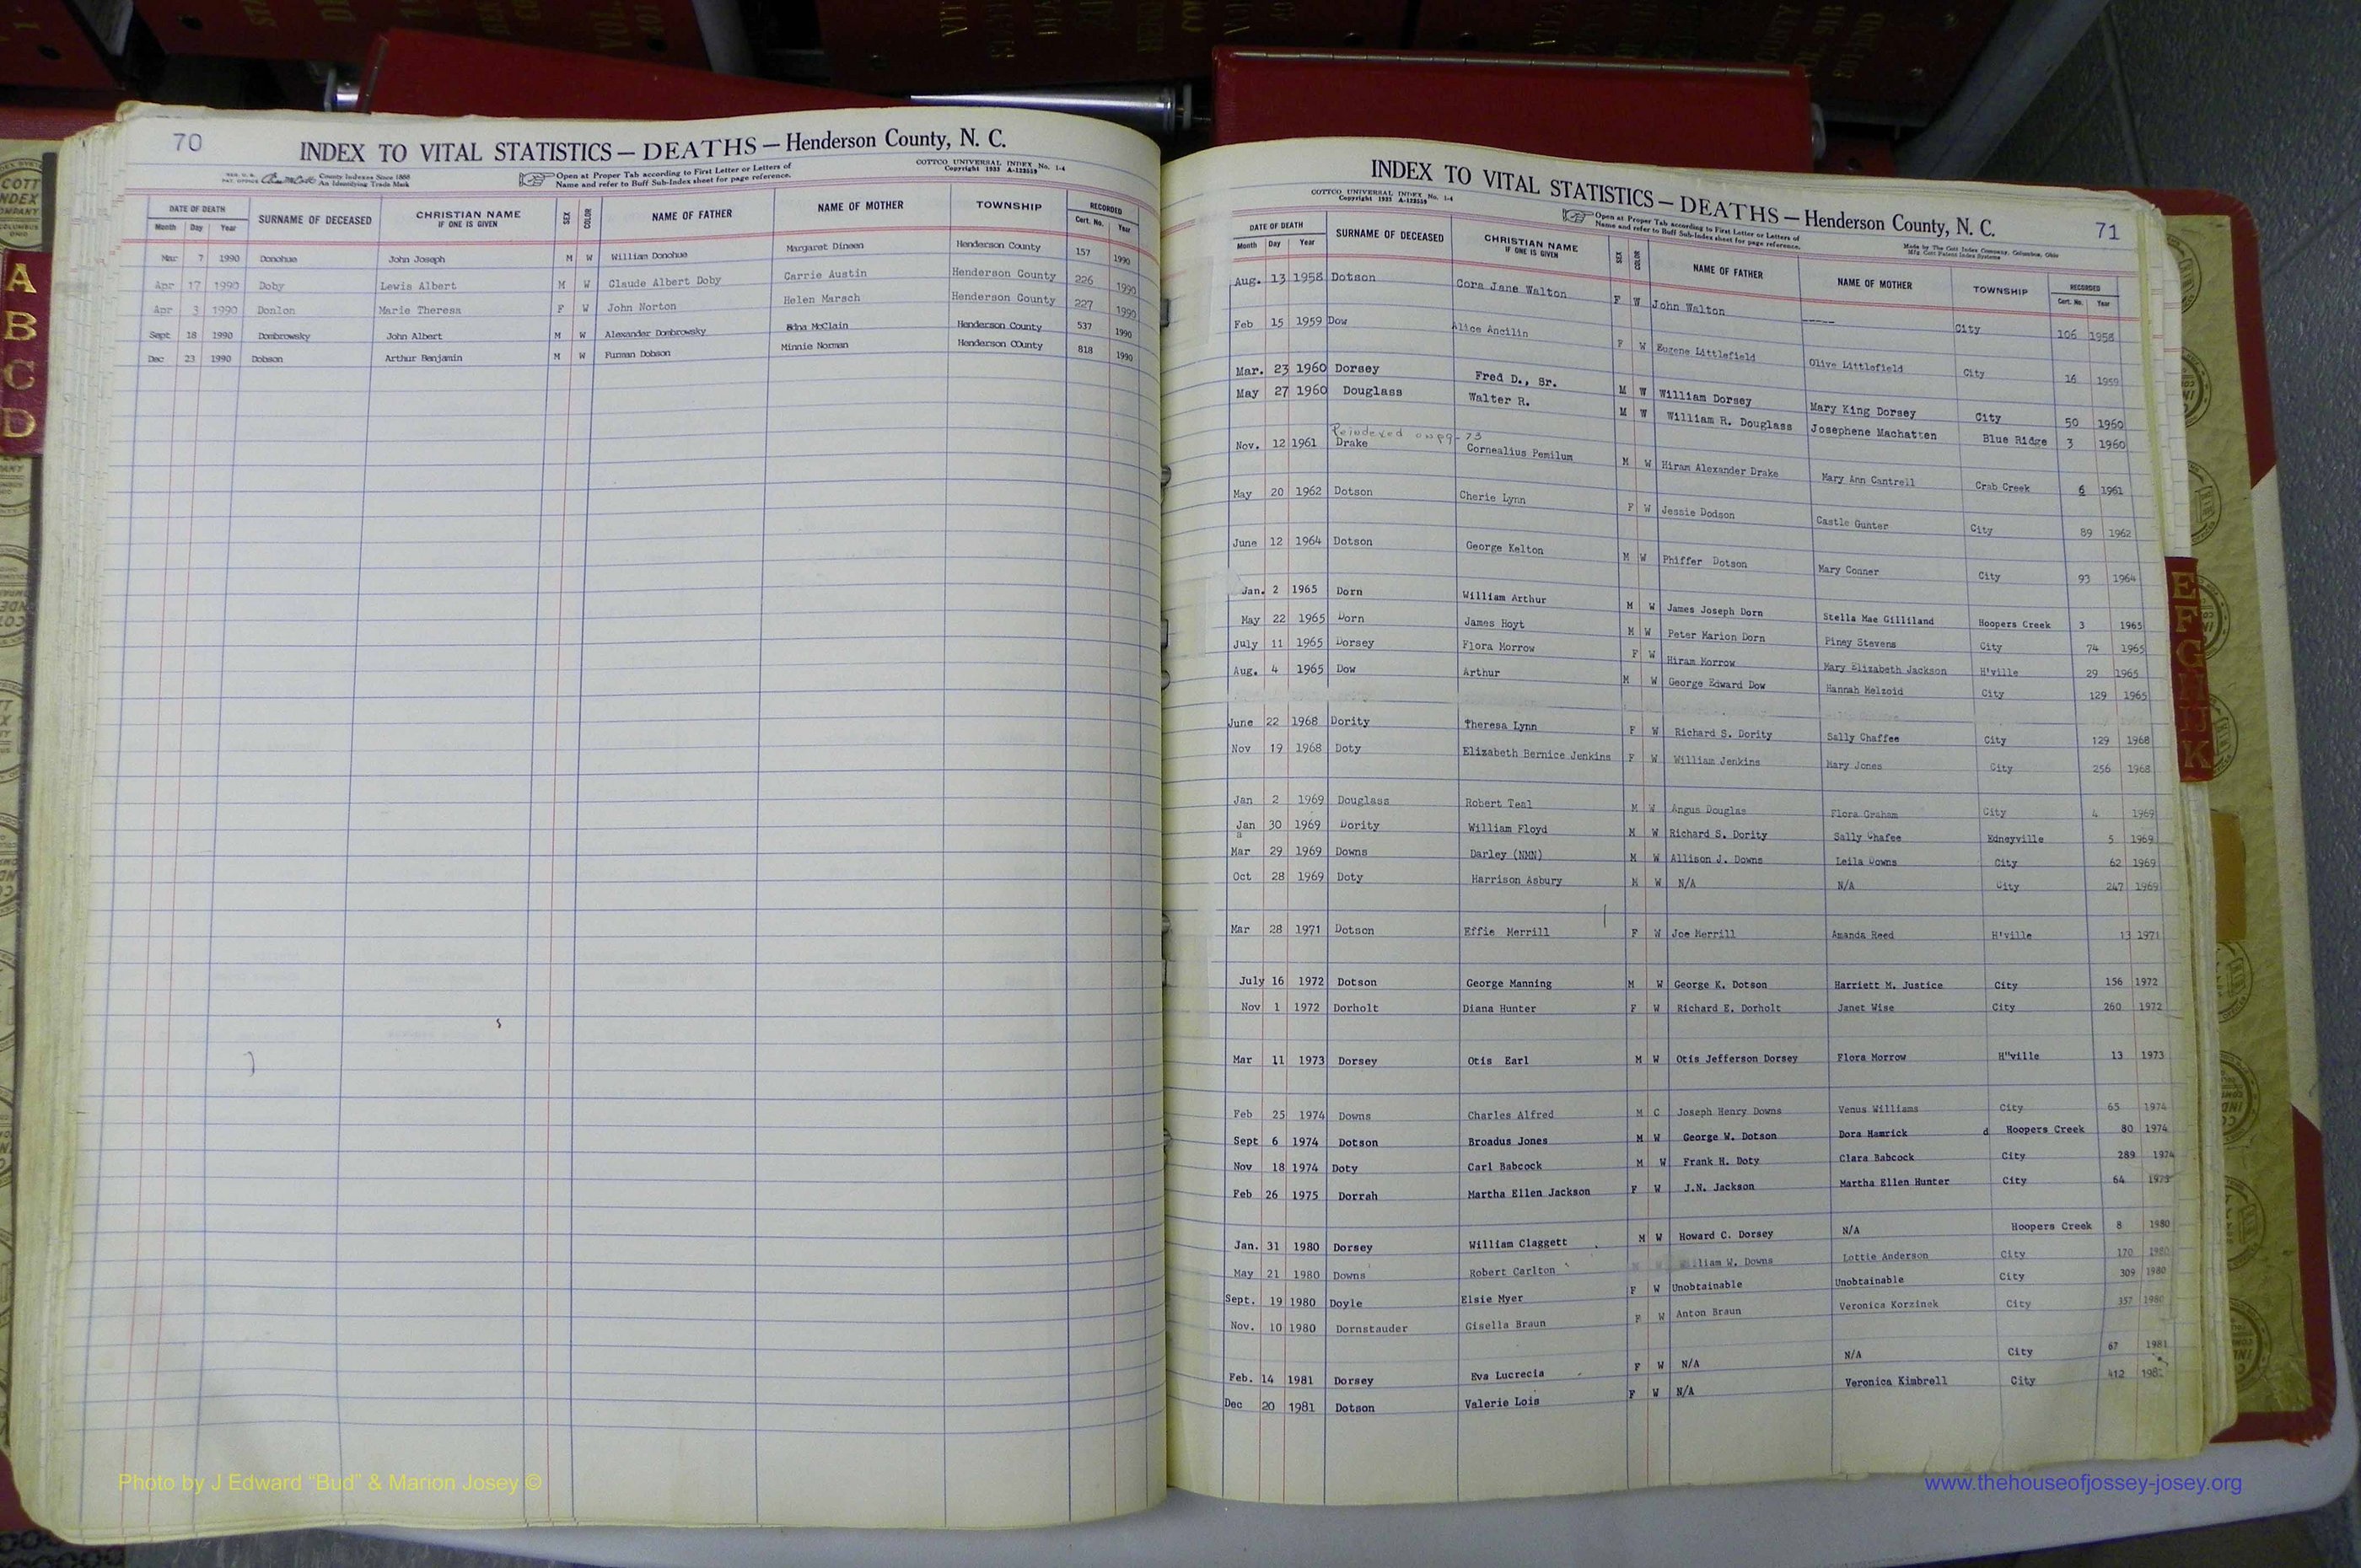 70
INDEX TO VITAL STATISTICS — DEATHS — Henderson County, N. C.
County Indexes Since 1888
An Identifying Trade Mark
Open at Proper Tab according to First Letter or Letters of
Name and refer to Buff Sub-Index sheet for page reference.
COTTCO UNIVERSAL INDEX No. 1-4
Copyright 1935 A-122559
DATE OF DEATH SURNAME OF DECEASED CHRISTIAN NAME IF ONE IS GIVEN SEX COLOR NAME OF FATHER NAME OF MOTHER TOWNSHIP RECORDED
Month Day Year Cert. No. Year
Mar 7 1990 Donohue John Joseph M W William Donohue Margaret Dineen Henderson County 157 1990
Apr 17 1990 Doby Lewis Albert M W Claude Albert Doby Carrie Austin Henderson County 226 1990
Apr 3 1990 Donlon Marie Theresa F W John Norton Helen Marsch Henderson County 227 1990
Sept 18 1990 Dombrowsky John Albert M W Alexander Dombrowsky Edna McClain Henderson County 537 1990
Dec 23 1990 Dobson Arthur Benjamin M W Furman Dobson Minnie Norman Henderson COunty 818 1990
INDEX TO VITAL STATISTICS — DEATHS — Henderson County, N. C.
71
COTTCO UNIVERSAL INDEX No. 1-4
Copyright 1935 A-122559
Open at Proper Tab according to First Letter or Letters of
Name and refer to Buff Sub-Index sheet for page reference.
Made by The Cott Index Company, Columbus, Ohio
Mfg Cott Patent Index Systems
DATE OF DEATH SURNAME OF DECEASED CHRISTIAN NAME IF ONE IS GIVEN SEX COLOR NAME OF FATHER NAME OF MOTHER TOWNSHIP RECORDED
Month Day Year Cert. No. Year
Aug. 13 1958 Dotson Cora Jane Walton F W John Walton ----- City 106 1958
Feb 15 1959 Dow Alice Ancilin F W Eugene Littlefield Olive Littlefield City 16 1959
Mar. 23 1960 Dorsey Fred D., Sr. M W William Dorsey Mary King Dorsey City 50 1960
May 27 1960 Douglass Walter R. M W William R. Douglass Josephene Machatten Blue Ridge 3 1960
Reindexed on pg. 73
Nov. 12 1961 Drake Cornealius Pemilum M W Hiram Alexander Drake Mary Ann Cantrell Crab Creek 6 1961
May 20 1962 Dotson Cherie Lynn F W Jessie Dodson Castle Gunter City 89 1962
June 12 1964 Dotson George Kelton M W Phiffer Dotson Mary Conner City 93 1964
Jan. 2 1965 Dorn William Arthur M W James Joseph Dorn Stella Mae Gilliland Hoopers Creek 3 1965
May 22 1965 Dorn James Hoyt M W Peter Marion Dorn Piney Stevens City 74 1965
July 11 1965 Dorsey Flora Morrow F W Hiram Morrow Mary Elizabeth Jackson H'ville 29 1965
Aug. 4 1965 Dow Arthur M W George Edward Dow Hannah Melzoid City 129 1965
June 22 1968 Dority Theresa Lynn F W Richard S. Dority Sally Chaffee City 129 1968
Nov 19 1968 Doty Elizabeth Bernice Jenkins F W William Jenkins Mary Jones City 256 1968
Jan 2 1969 Douglass Robert Teal M W Angus Douglas Flora Graham City 4 1969
Jan 30 1969 Dority William Floyd M W Richard S. Dority Sally Chafee Edneyville 5 1969
Mar 29 1969 Downs Darley (NMN) M W Allison J. Downs Leila Downs City 62 1969
Oct 28 1969 Doty Harrison Asbury M W N/A N/A City 247 1969
Mar 28 1971 Dotson Effie Merrill F W Joe Merrill Amanda Reed H'ville 13 1971
July 16 1972 Dotson George Manning M W George K. Dotson Harriett M. Justice City 156 1972
Nov 1 1972 Dorholt Diana Hunter F W Richard E. Dorholt Janet Wise City 260 1972
Mar 11 1973 Dorsey Otis Earl M W Otis Jefferson Dorsey Flora Morrow H"ville 13 1973
Feb 25 1974 Downs Charles Alfred M C Joseph Henry Downs Venus Williams City 65 1974
Sept 6 1974 Dotson Broadus Jones M W George W. Dotson Dora Hamrick d Hoopers Creek 80 1974
Nov 18 1974 Doty Carl Babcock M W Frank H. Doty Clara Babcock City 289 1974
Feb 26 1975 Dorrah Martha Ellen Jackson F W J.N. Jackson Martha Ellen Hunter City 64 1975
Jan. 31 1980 Dorsey William Claggett M W Howard C. Dorsey N/A Hoopers Creek 8 1980
May 21 1980 Downs Robert Carlton William W. Downs Lottie Anderson City 170 1980
Sept. 19 1980 Doyle Elsie Myer F W Unobtainable Unobtainable City 309 1980
Nov. 10 1980 Dornstauder Gisella Braun F W Anton Braun Veronica Korzinek City 357 1980
Feb. 14 1981 Dorsey Eva Lucrecia F W N/A N/A City 67 1981
Dec 20 1981 Dotson Valerie Lois F W N/A Veronica Kimbrell City 412
A
B
C
D
E
F
G
H
IJ
K
Photo by J Edward “Bud” & Marion Josey ©
www.thehouseofjossey-josey.org